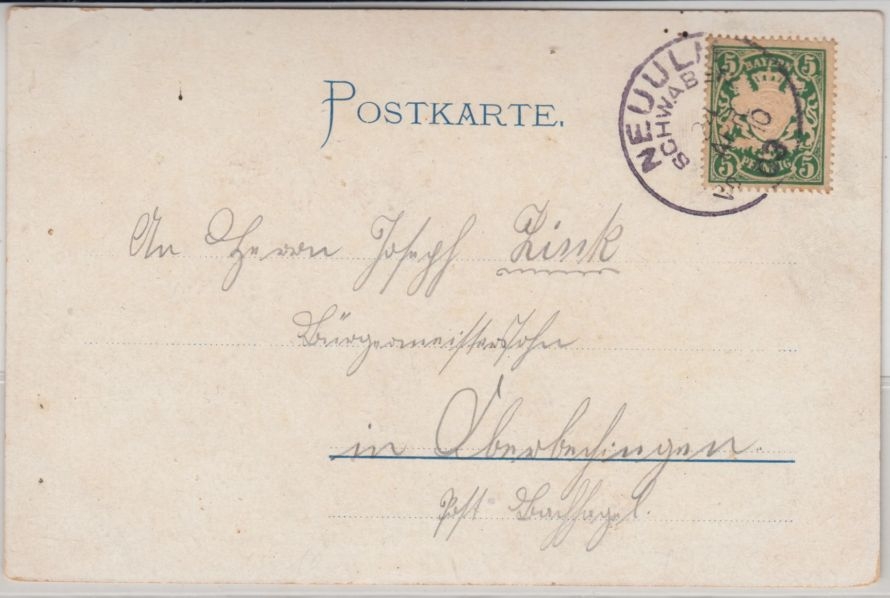 POSTKARTE.
NEUULM
SCHWABEN
5 BAYERN 5
5 PFENNIG 5
An Herrn Joseph Zink
Bürgermeisterssohn
in Oberbechingen.
Post Bachhagel.